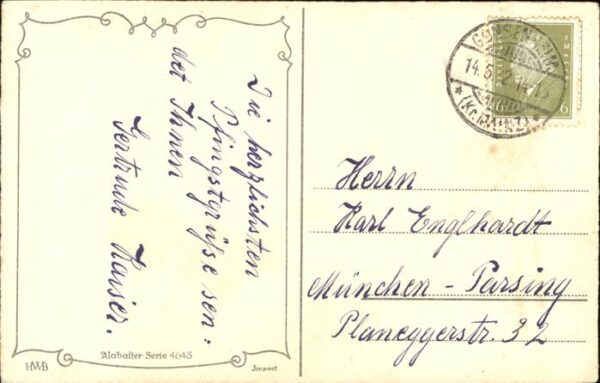 Die herzlichsten
Pfingstgrüße sen:
det Ihnen
Gertrude Kaiser.
HWB
Alabaster-Serie 4643
Import
GONSENHEIM
14.5. 2 14-15
* (Kr. MAINZ) *
6
Herrn
Karl Englhardt
München - Parsing
Planeggerstr. 32